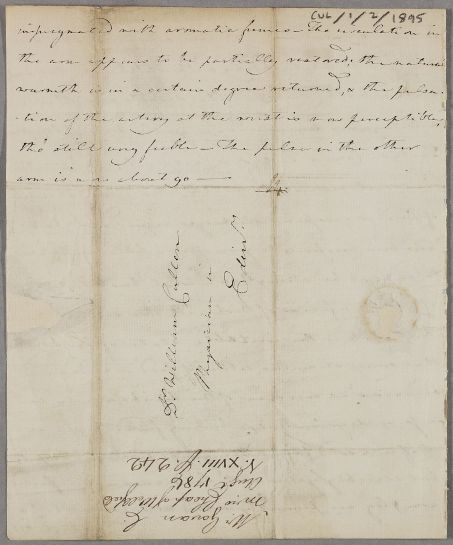 CUL/1/2/1895
impregnated with aromatic fumes – The circulation in
the arm appears to be partially restored, the natural
warmth is in a certain degree returned, & the pulsa-
-tion of the artery at the wrist is now perceptible,
tho' still very feeble – The pulse in the other
arm is now about 90 –
Dr. William Cullen
Physician in
Edinr.
Mr Gowan
Miss Cheap of
Augt. 1786
N. XVIII. p. 242